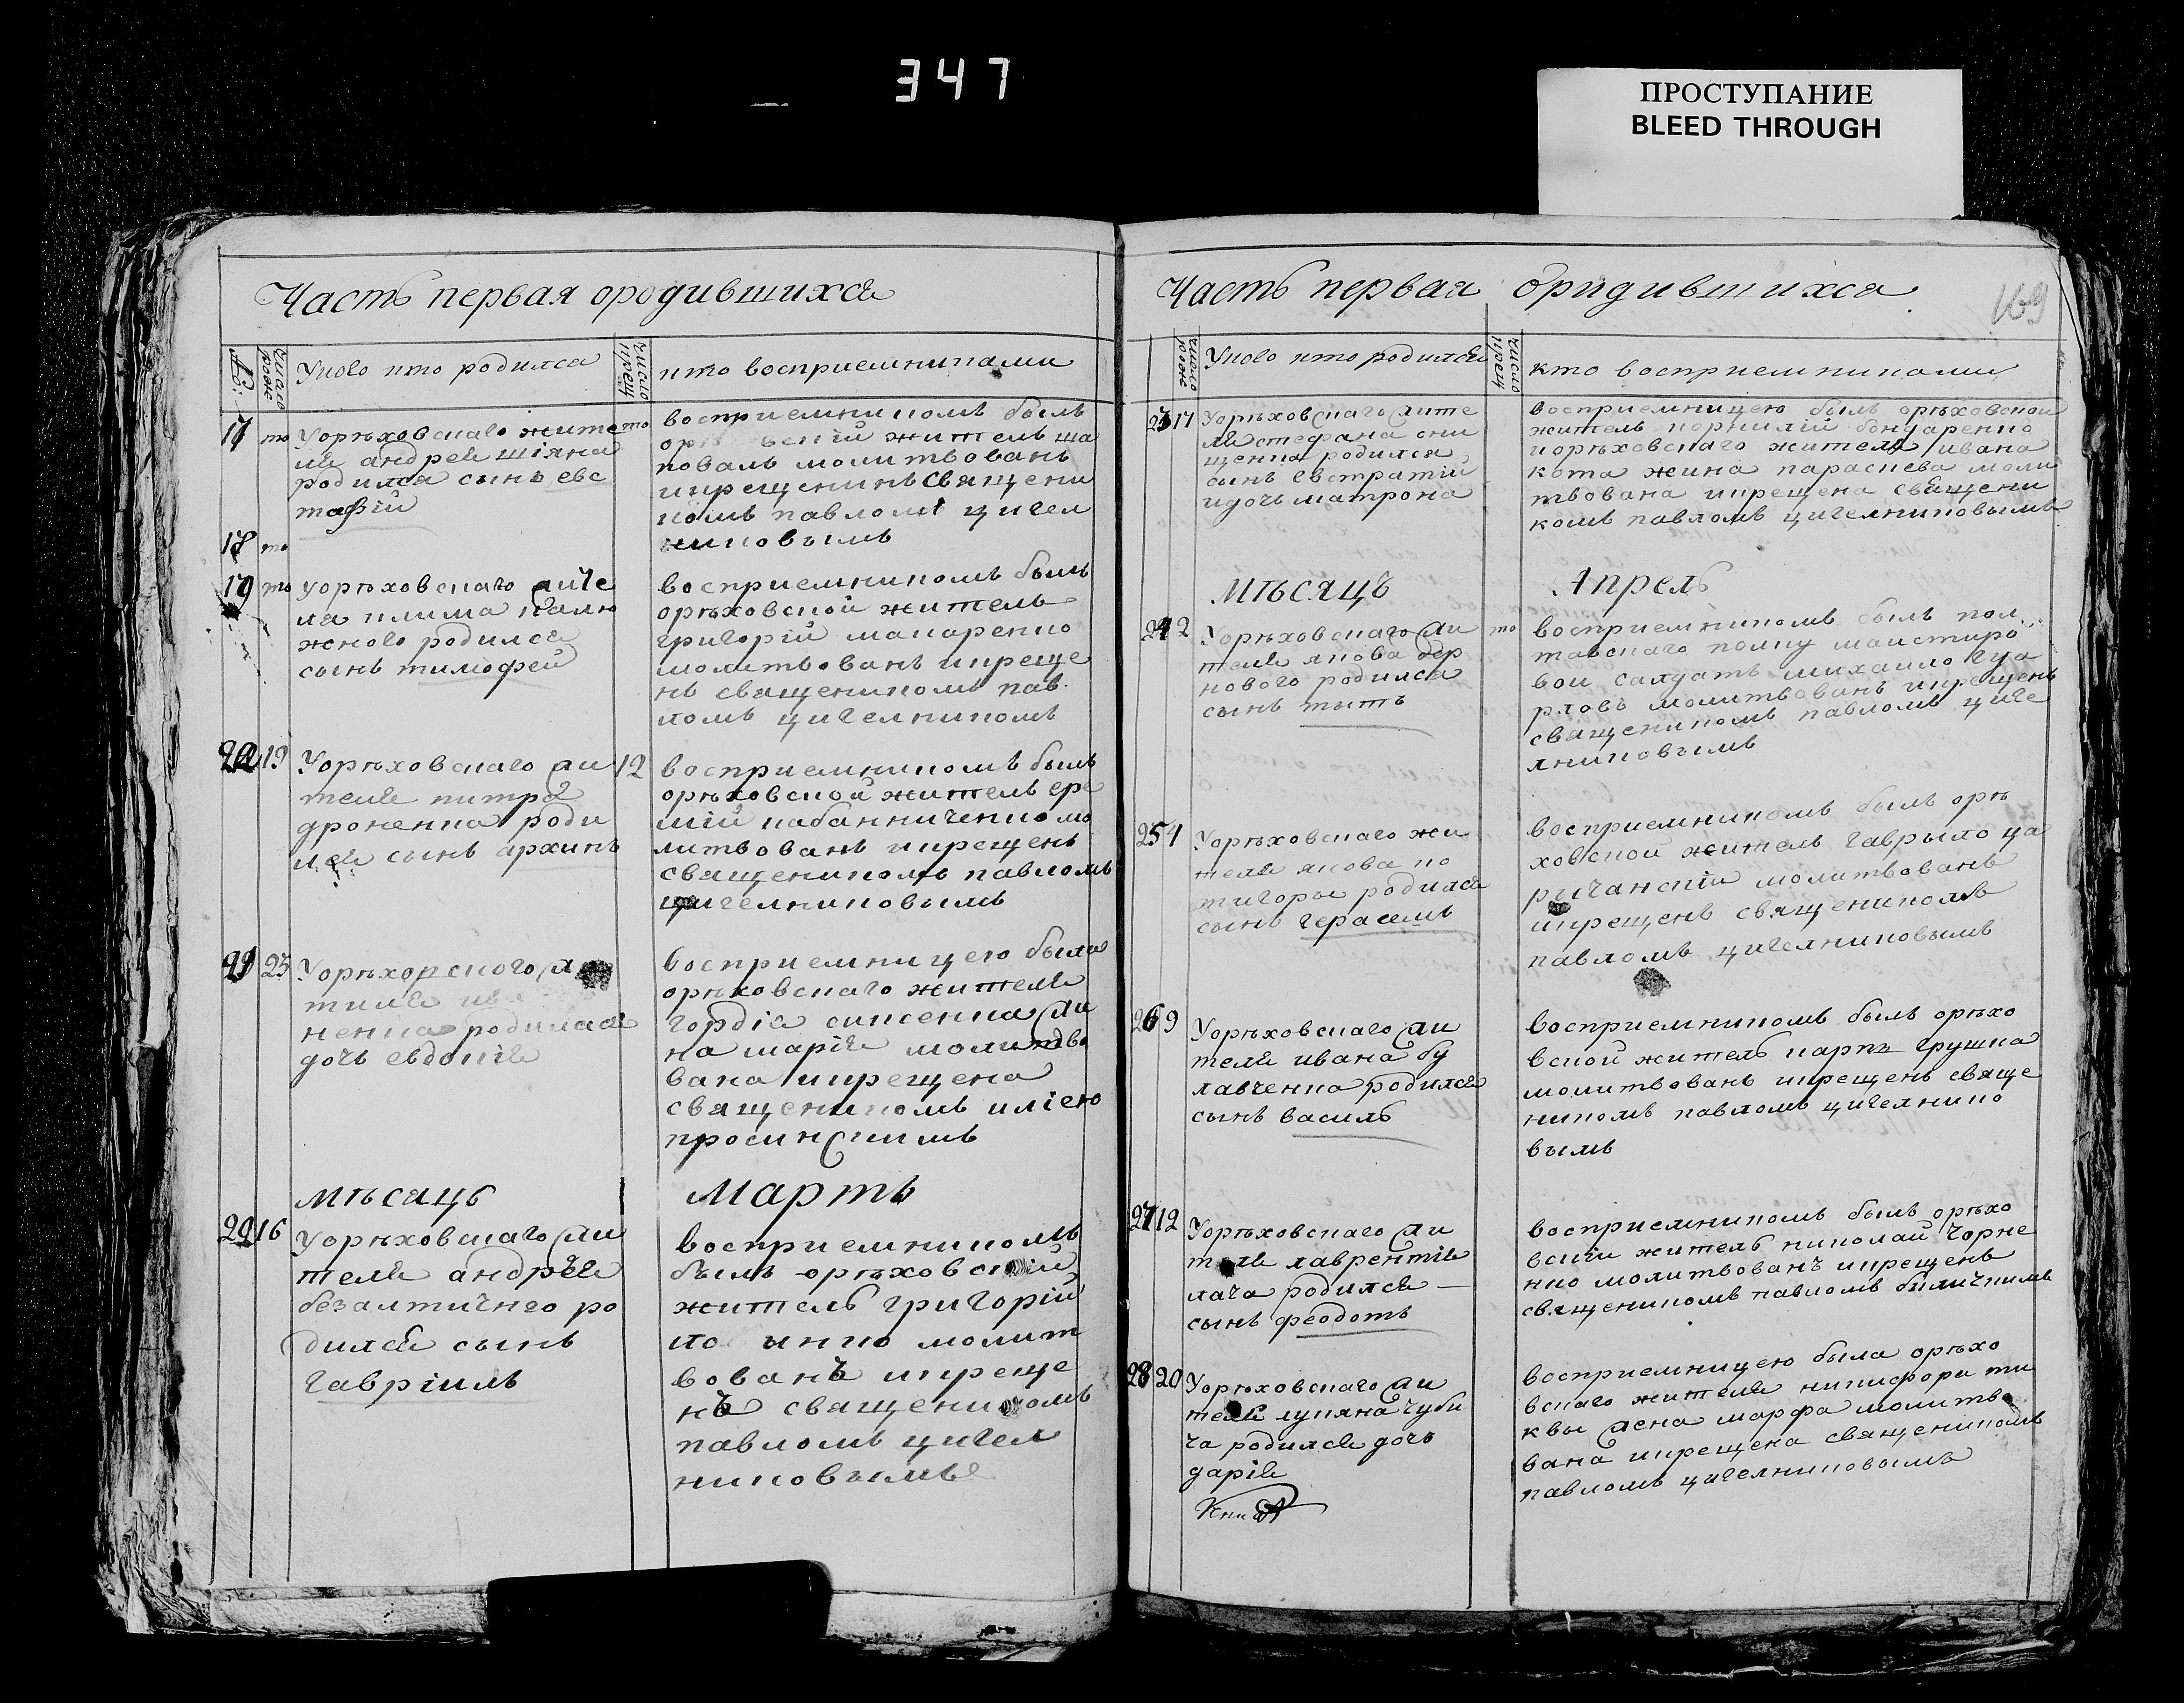 347
ПРОСТУПАНИЕ
BLEED THROUGH
Часть первая ородившихся
№:
число рож
Уково кто родился
число крещ
кто восприемниками
17 то Уорѣховскаго жите то
ля андрея шіяна
родился сынъ евс
тафій
восприемникомъ былъ
орѣ вскій житель ша
повалъ молитвованъ
икрещенинъ священи
комъ павломъ цигел
никовымъ
18 то
19 то Уорѣховскаго жите
ля клима калю
жного родился
сынъ тимофей
восприемникомъ былъ
орѣховской житель
григорій макаренко
молитвованъ икреще
нъ священикомъ пав
ломъ цигелникомъ
20 19 Уорѣховскаго жи 12
теля питра
дроненка роди
лся сынъ архипъ
восприемникомъ былъ
орѣховской житель ере
мій кабанниченко мо
литвованъ икрещенъ
священикомъ павломъ
цигелниковымъ
21 25 Уорѣховского
тиля
ненка родилася
дочь евдокія
восприемницею была
орѣховскаго жителя
гордія сисенка жи
на марія молитво
вана икрещена
священикомъ иліею
просинскимъ
мѣсяцъ Мартъ
22 16 Уорѣховскаго жи
теля андрѣя
безалтичнео ро
дился сынъ
гавріилъ
восприемникомъ
былъ орѣховский
житель григорій
молит
вованъ икреще
нъ священикомъ
павломъ цигел
никовымъ
Часть первая оридившихся
169
число рож
Уково кто родился
число крещ
кто восприемниками
23 17 Уорѣховскаго жите
ля стефана они
щенка родился
сынъ евстратій
идочь матрона
восприемницею былъ орѣховской
житель корнилій бондаренко
иорѣховскаго жителя ивана
кота жина параскева моли
твована икрещена священи
комъ павломъ цигелниковымъ
Мѣсяцъ Апрель
24 2 Уорѣховскаго жи то
теля якова дер
нового родился
сынъ тытъ
восприемникомъ былъ пол
тавскаго полку маистиро
вои салдатъ михаило гуа
рловъ молитвованъ икрещенъ
священикомъ павломъ циге
лниковымъ
25 4 Уорѣховскаго жи
теля якова ко
тигоры родился
сынъ герасемъ
восприемникомъ былъ орѣ
ховской житель гаврыло ца
рычанскій молитвованъ
икрещенъ священикомъ
павломъ цигелниковымъ
26 9 Уорѣховскаго жи
теля ивана бу
лавченка родился
сынъ василь
восприемникомъ былъ орѣхо
вской житель карпъ грушка
молитвованъ икрещенъ свяще
никомъ павломъ цигелнико
вымъ
27 12 Уорѣховскаго жи
теля лаврентія
лача родился
сынъ феодотъ
восприемникомъ былъ орѣхо
вскій житель николай чорне
нко молитвованъ икрещенъ
священикомъ павломъ биличкимъ
28 20 Уорѣховскаго жи
теля лукяна чуби
ча родился дочь
дарія
восприемницею была орѣхо
вскаго жителя никифора ти
квы жена марфа молитво
вана икрещена священикомъ
павломъ цигелниковымъ